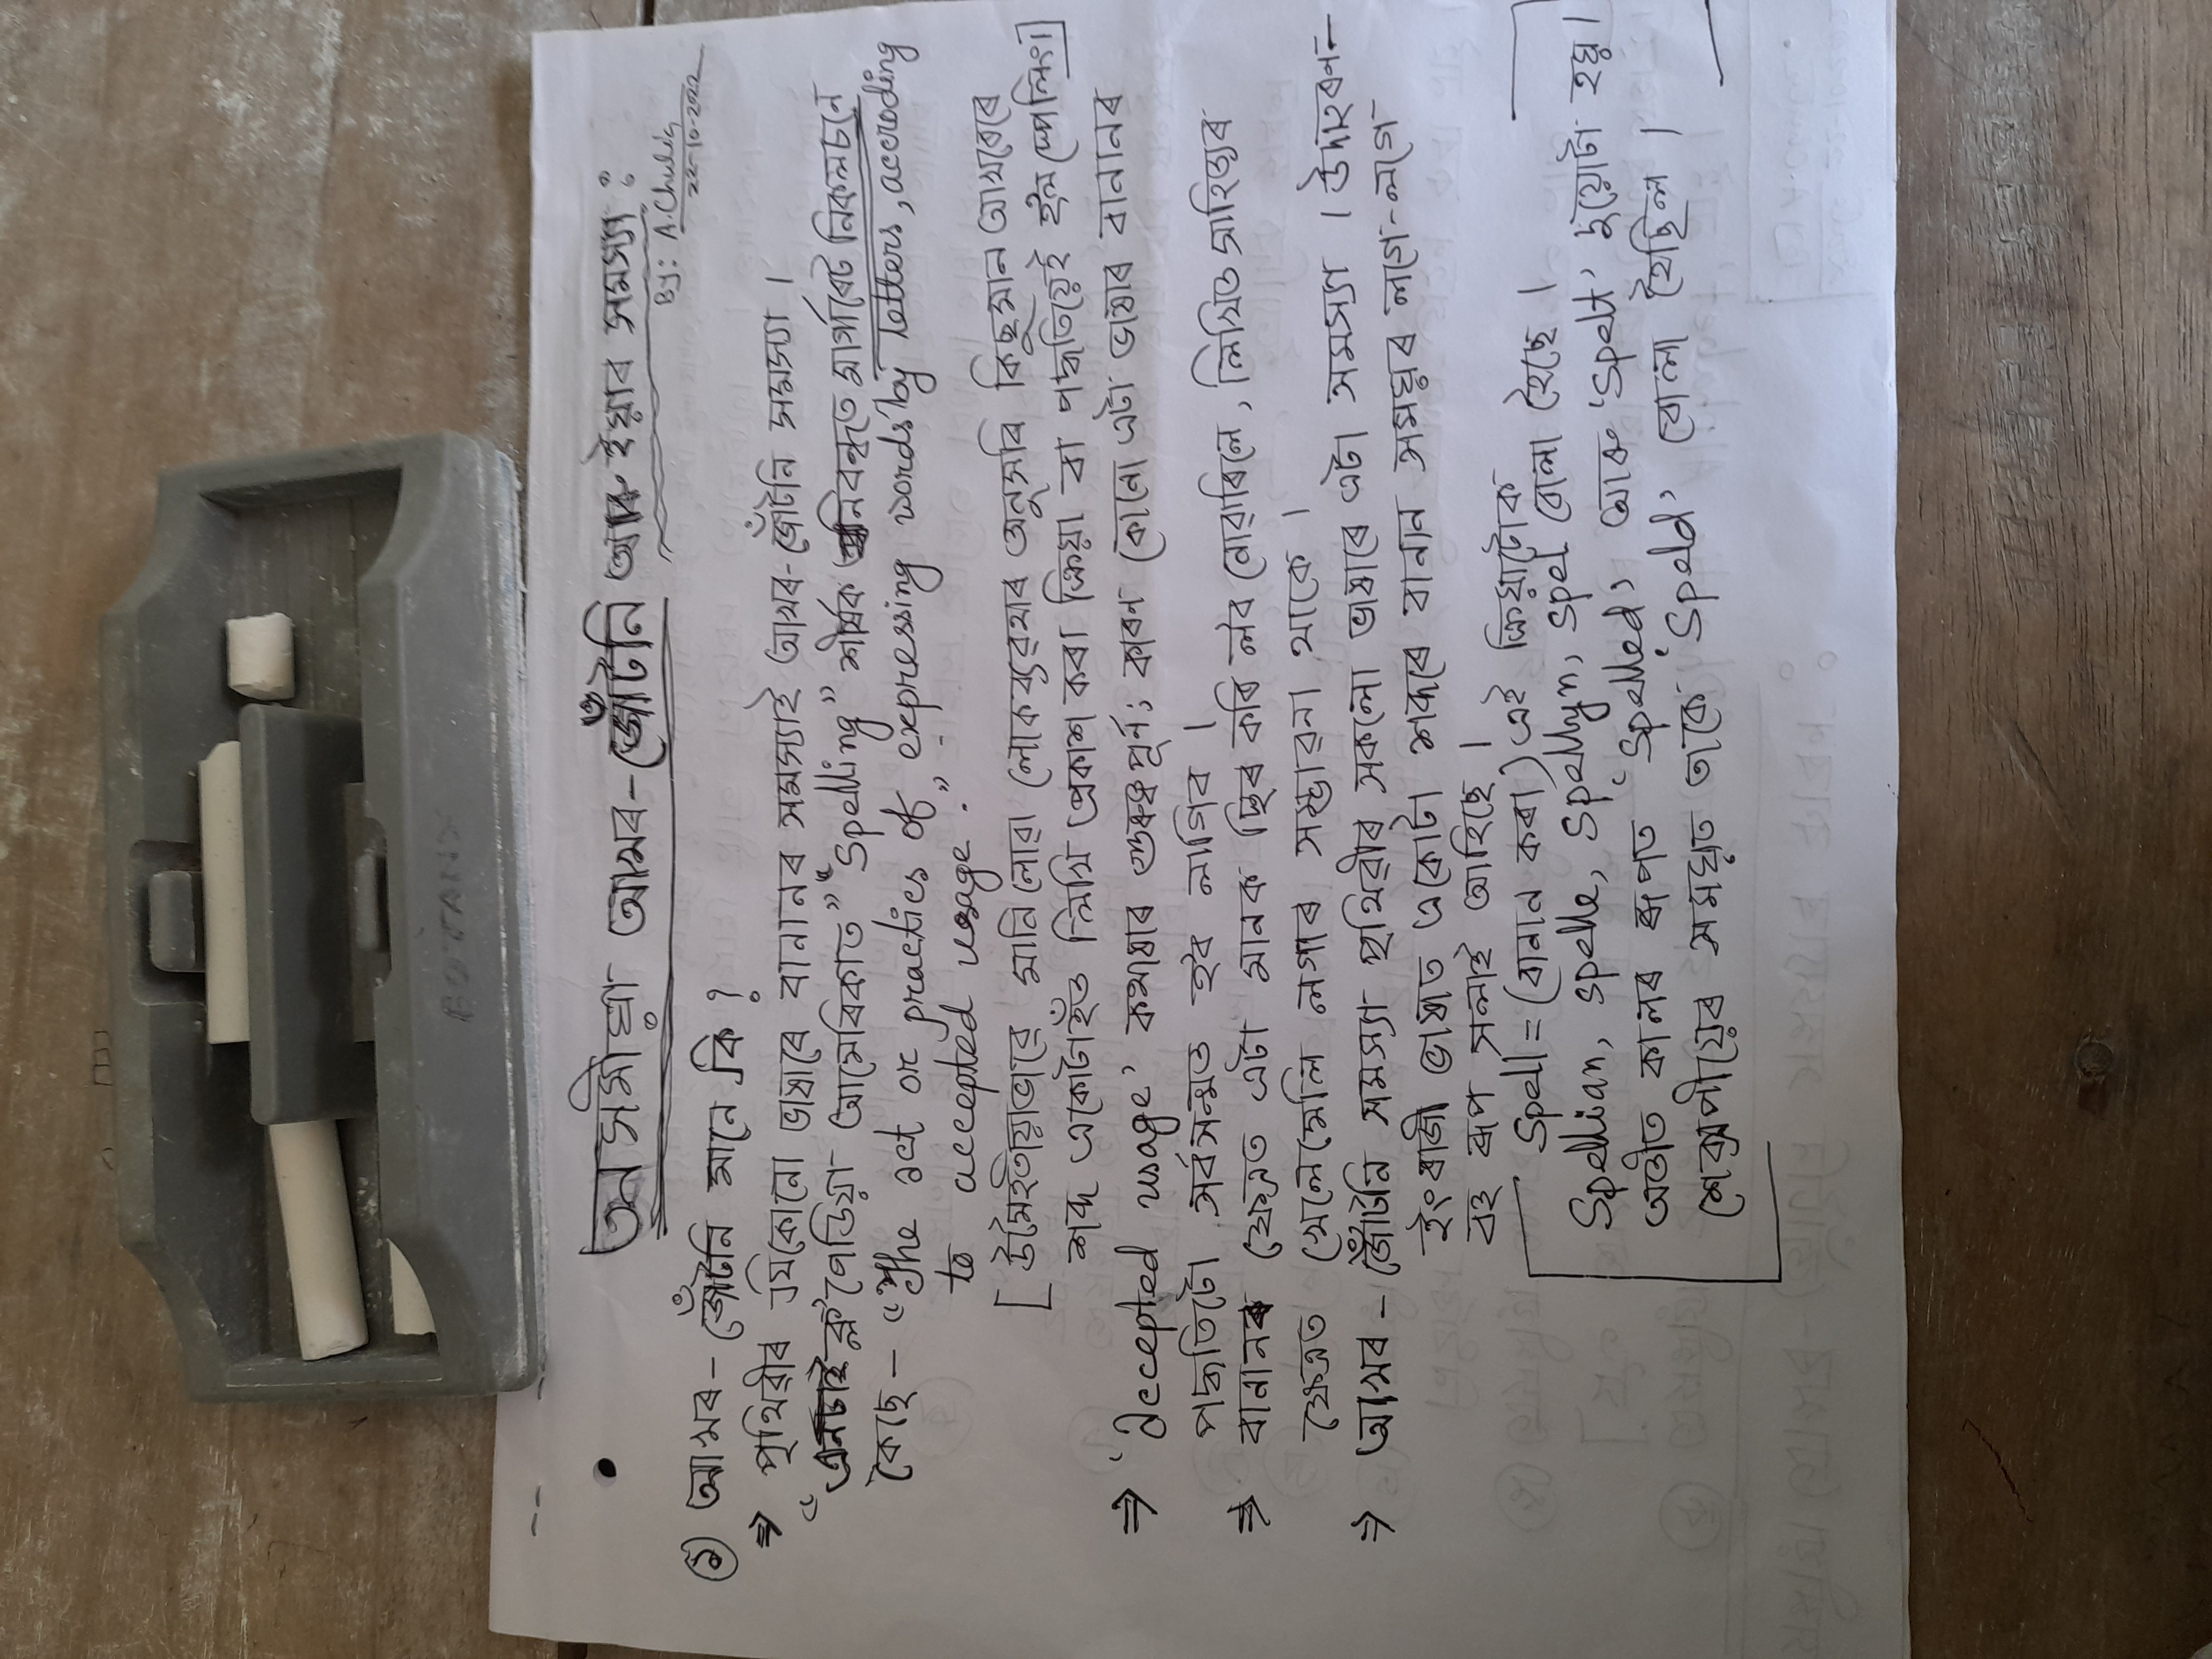 অসমীয়া আখৰ-জোঁটনি আৰু ইয়াৰ সমস্যা :
By: A. Chulda
22-10-2022
১ আখৰ-জোঁটনি মানে কি ?
⇒ পৃথিৱীৰ যিকোনো ভাষাৰে বানানৰ সমস্যাই আখৰ-জোঁটনি সমস্যা ।
“এনচাইক্লপেডিয়া আমেৰিকাত” “Spelling” শীৰ্ষক নিবন্ধত মাৰ্গাৰেট নিকলচনে
কৈছে – “The act or practies of expressing words by letters, according
to accepted usage.”
[ উমৈহতীয়াভাৱে মানি লোৱা লোকব্যৱহাৰ অনুসৰি কিছুমান আখৰেৰে
শব্দ একোটাহঁত লিখি প্ৰকাশ কৰা ক্ৰিয়া বা পদ্ধতিয়েই হ'ল স্পেলিং।]
⇒ ‘accepted usage’ কথাষাৰ গুৰুত্বপূৰ্ণ; কাৰণ কোনো এটা ভাষাৰ বানানৰ
পদ্ধতিটো সৰ্বসন্মত হ'ব লাগিব ।
⇒ বানানৰ ক্ষেত্ৰত এটা মানক স্থিৰ কৰি ল'ব নোৱাৰিলে, লিখিত সাহিত্যৰ
ক্ষেত্ৰত খেলিমেলি লগাৰ সম্ভাৱনা থাকে ।
⇒ আখৰ-জোঁটনি সমস্যা পৃথিৱীৰ সকলো ভাষাৰে এটা সমস্যা । উদাহৰণ-
ইংৰাজী ভাষাত একোটা শব্দৰে বানান সময়ৰ লগে-লগে
বহু ৰূপ সলাই আহিছে ।
Spell = (বানান কৰা) এই ক্ৰিয়াটোক
Spellian, spelle, spellyn, spel বোলা হৈছে ।
অতীত কালৰ ৰূপত ‘Spelled’ আৰু ‘Spelt’ দুয়োটা হয় ।
শেক্সপীয়েৰৰ সময়ত তাকে ‘Speld’ বোলা হৈছিল ।